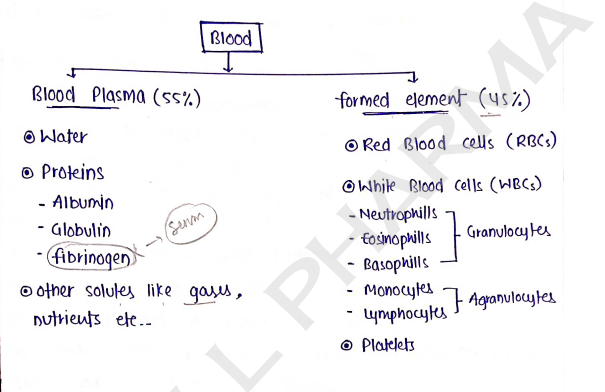 Blood
Blood Plasma (55%)
Water
Proteins
- Albumin
- Globulin
- fibrinogen
Serum
other solutes like gases,
nutrients etc..
formed element (45%)
Red Blood cells (RBCs)
White Blood cells (WBCs)
- Neutrophills
- Eosinophills
- Basophills
Granulocytes
- Monocytes
- Lymphocytes
Agranulocytes
Platelets
L PHARMA